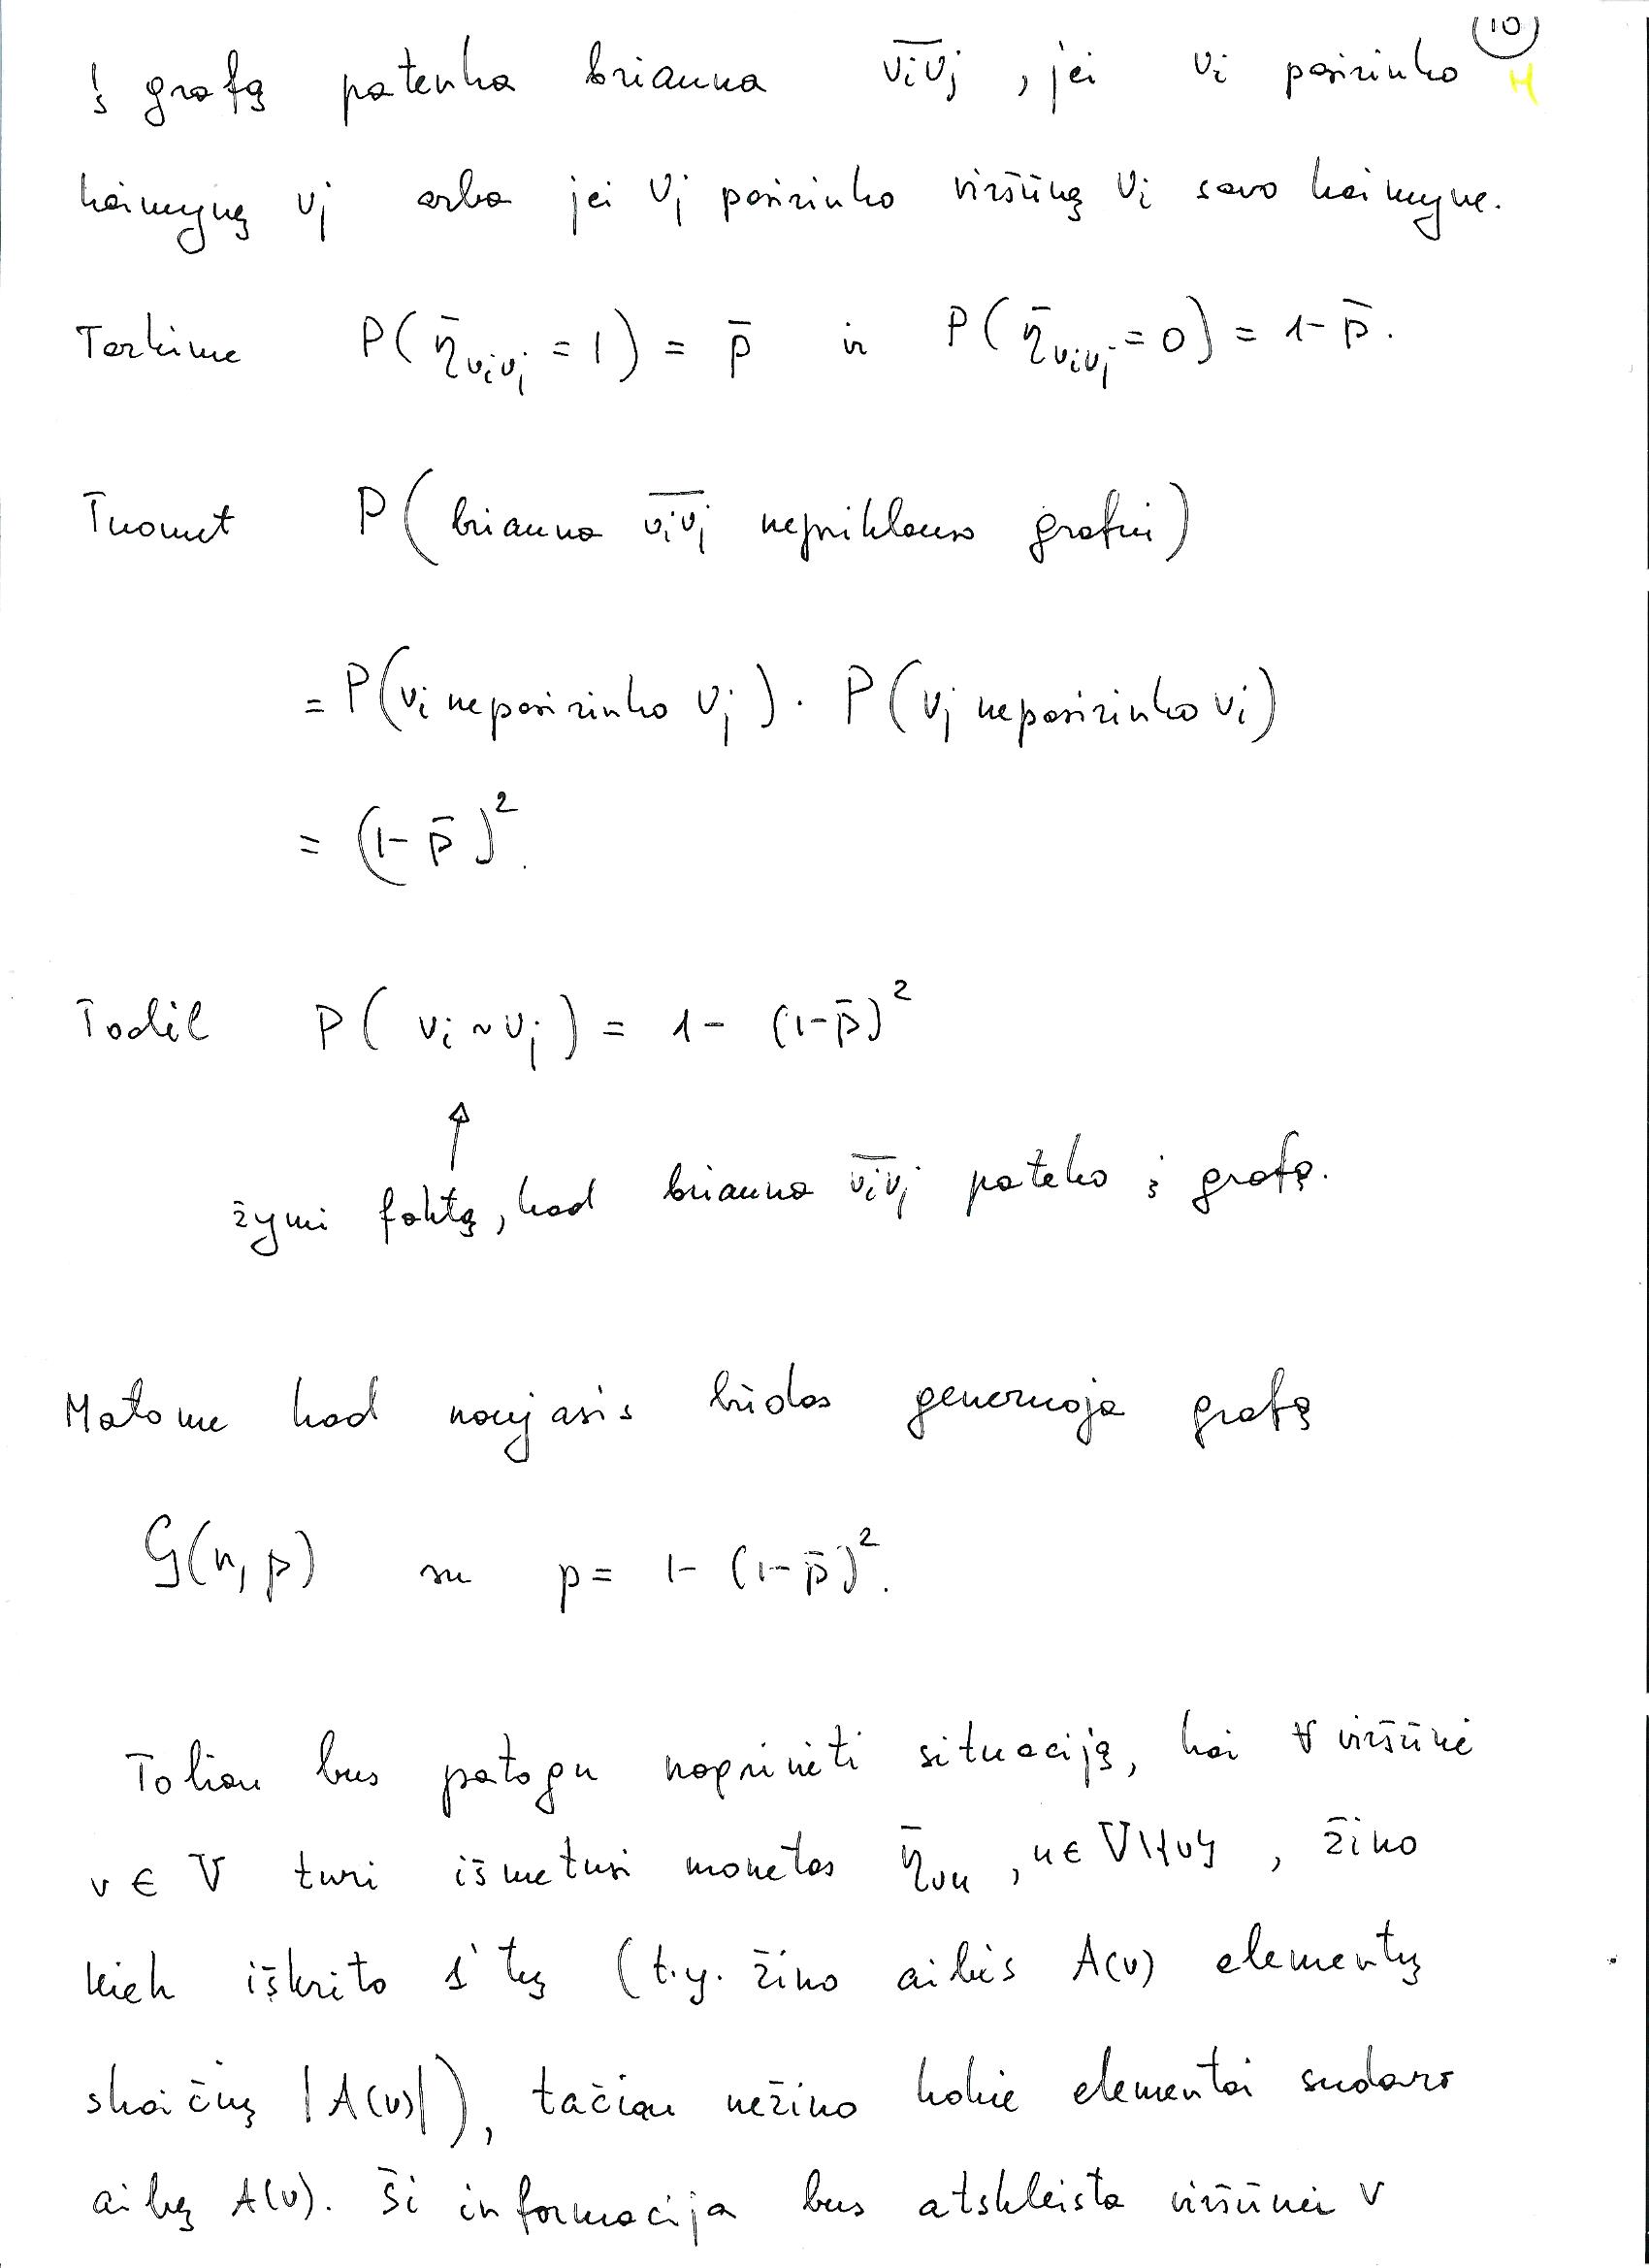 (10)
Į grafą patenka briauna v̅i̅v̅j̅, jei vi pasirinko
H
kaimyną vj arba jei vj pasirinko viršūnę vi savo kaimyne.
Tarkime P(η̄vivj = 1) = p̄ ir P(η̄vivj = 0) = 1-p̄.
Tuomet P(briauna v̅i̅v̅j̅ nepriklauso grafui)
= P(vi nepasirinko vj) · P(vj nepasirinko vi)
= (1-p̄)².
Todėl P(vi ~ vj) = 1 - (1-p̄)²
↑
žymi faktą, kad briauna v̅i̅v̅j̅ pateko į grafą.
Matome kad naujasis būdas generuoja grafą
G(n, p) su p = 1-(1-p̄)².
Toliau bus patogu nagrinėti situaciją, kai ∀ viršūnė
v ∈ V turi išmetusi monetas η̄vu, u ∈ V\{v}, žino
kiek iškrito 1'tų (t.y. žino aibės A(v) elementų
skaičių |A(v)|), tačiau nežino kokie elementai sudaro
aibę A(v). Ši informacija bus atskleista viršūnei v